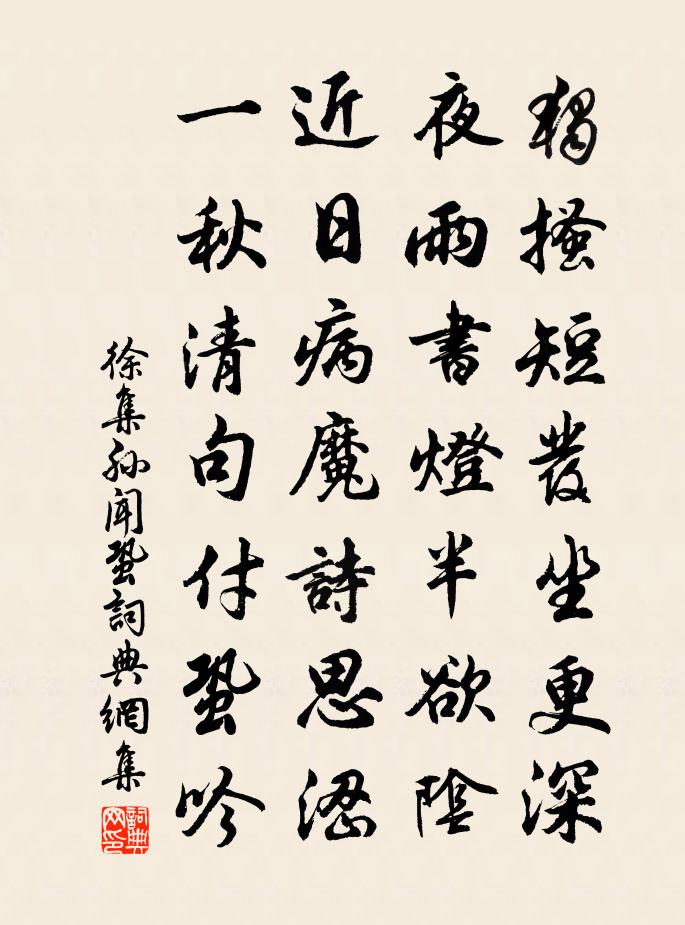 獨搔短發坐更深
夜雨書燈半欲陰
近日病魔詩思澀
一秋清句付蛩吟
徐集孫聞蛩詞典網集
詞典網印